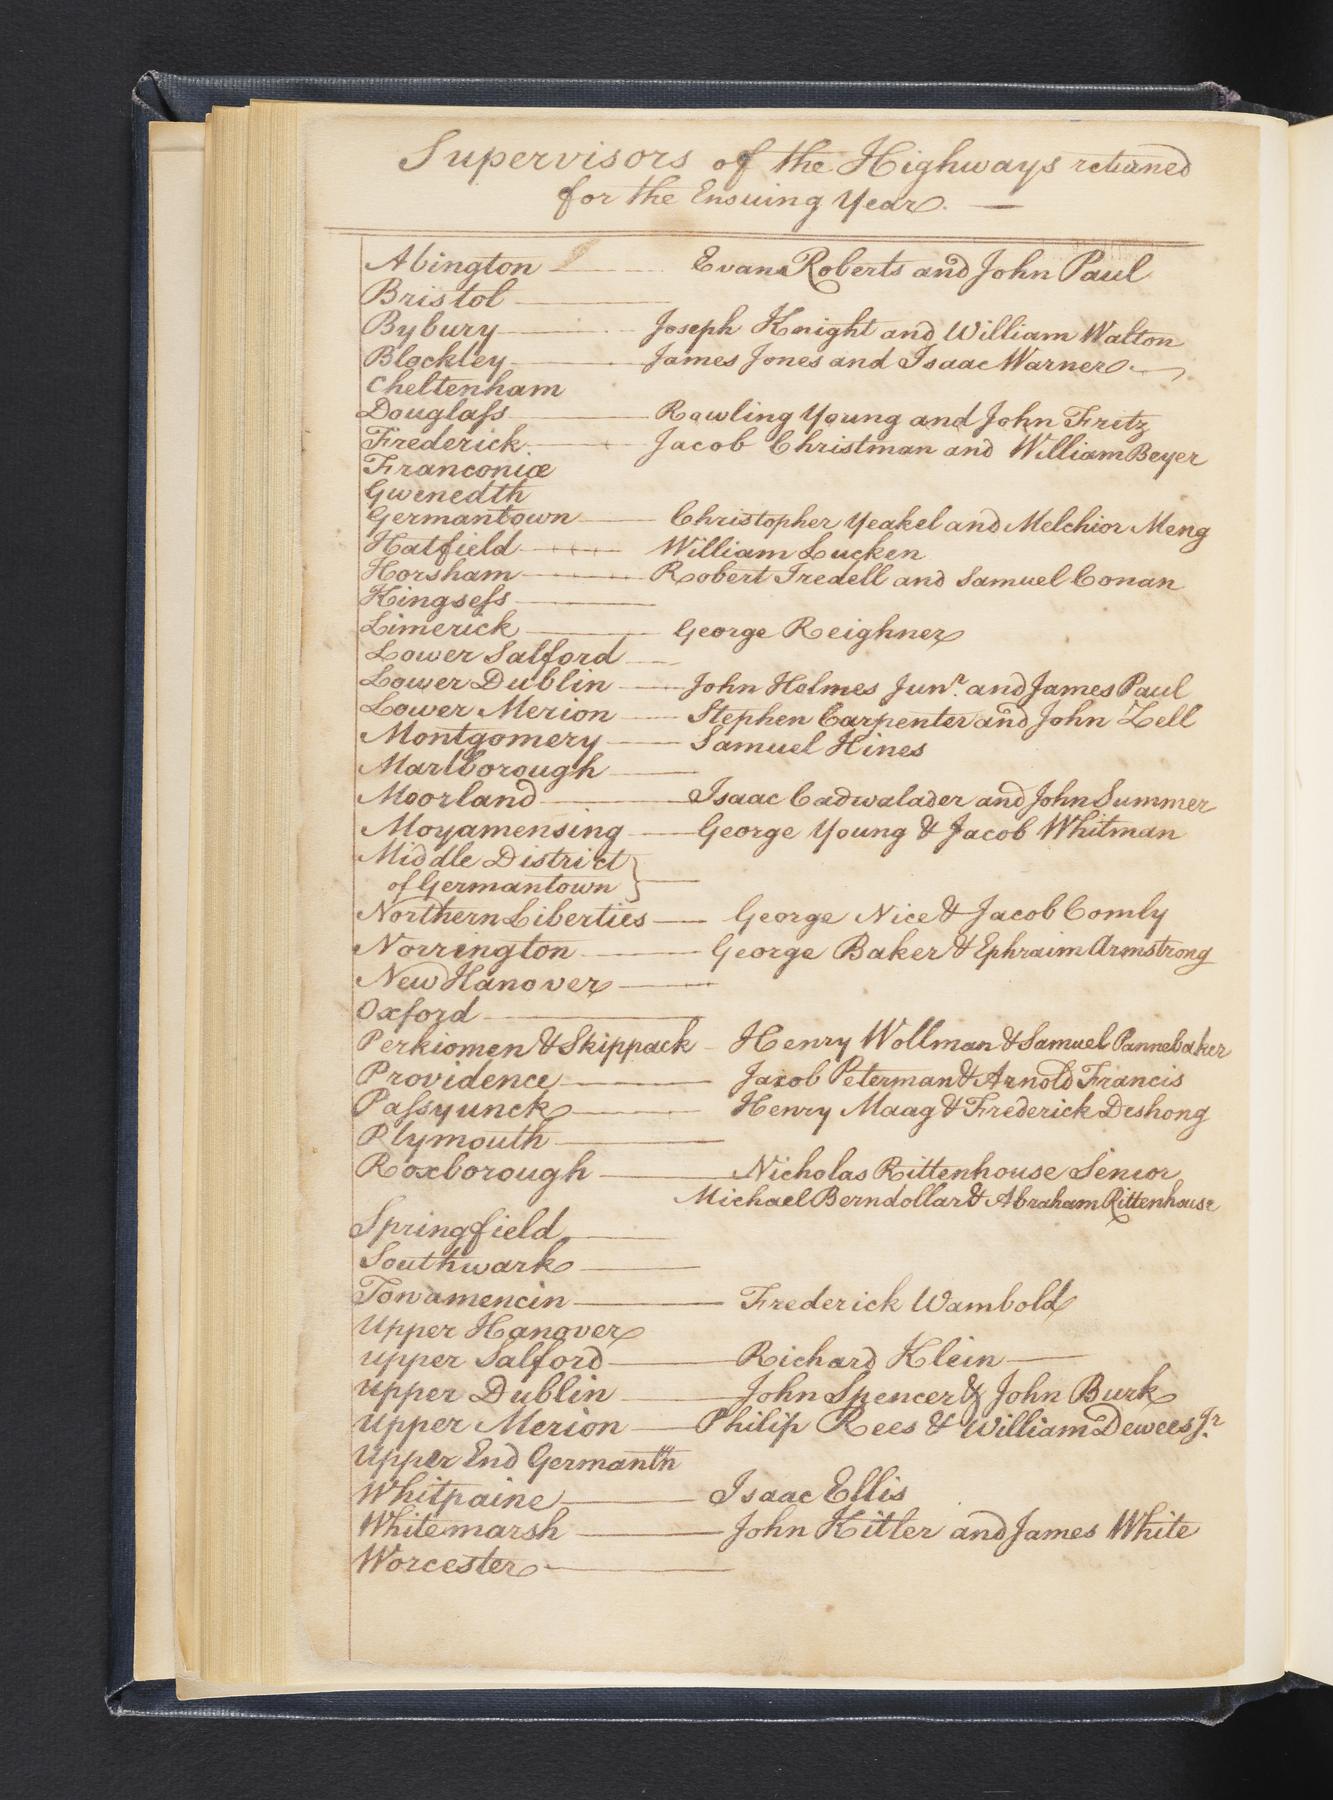 Supervisors of the Highways returned
for the Ensuing Year. —
Abington — Evans Roberts and John Paul
Bristol —
Bybury — Joseph Knight and William Walton
Blockley — James Jones and Isaac Warner —
Cheltenham
Douglass — Rowling Young and John Fritz
Frederick — Jacob Christman and William Beyer
Franconiæ
Gwenedth
Germantown — Christopher Yeakel and Melchior Meng
Hatfield — William Lucken
Horsham — Robert Iredell and Samuel Conan
Kingsess —
Limerick — George Reighner
Lower Salford —
Lower Dublin — John Holmes Junr. and James Paul
Lower Merion — Stephen Carpenter and John Zell
Montgomery — Samuel Hines
Marlborough —
Moorland — Isaac Cadwalader and John Summer
Moyamensing — George Young & Jacob Whitman
Middle District }
of Germantown } —
Northern Liberties — George Nice & Jacob Comly
Norrington — George Baker & Ephraim Armstrong
New Hanover —
Oxford —
Perkiomen & Skippack — Henry Wollman & Samuel Pannebaker
Providence — Jacob Peterman & Arnold Francis
Passyunck — Henry Maag & Frederick Deshong
Plymouth —
Roxborough — Nicholas Rittenhouse Senior
Michael Berndollar & Abraham Rittenhouse
Springfield —
Southwark —
Towamencin — Frederick Wambold
Upper Hanover
Upper Salford — Richard Klein —
Upper Dublin — John Spencer & John Burk
Upper Merion — Philip Rees & William Dewees Jr.
Upper End Germantn
Whitpaine — Isaac Ellis
Whitemarsh — John Kitler and James White
Worcester —